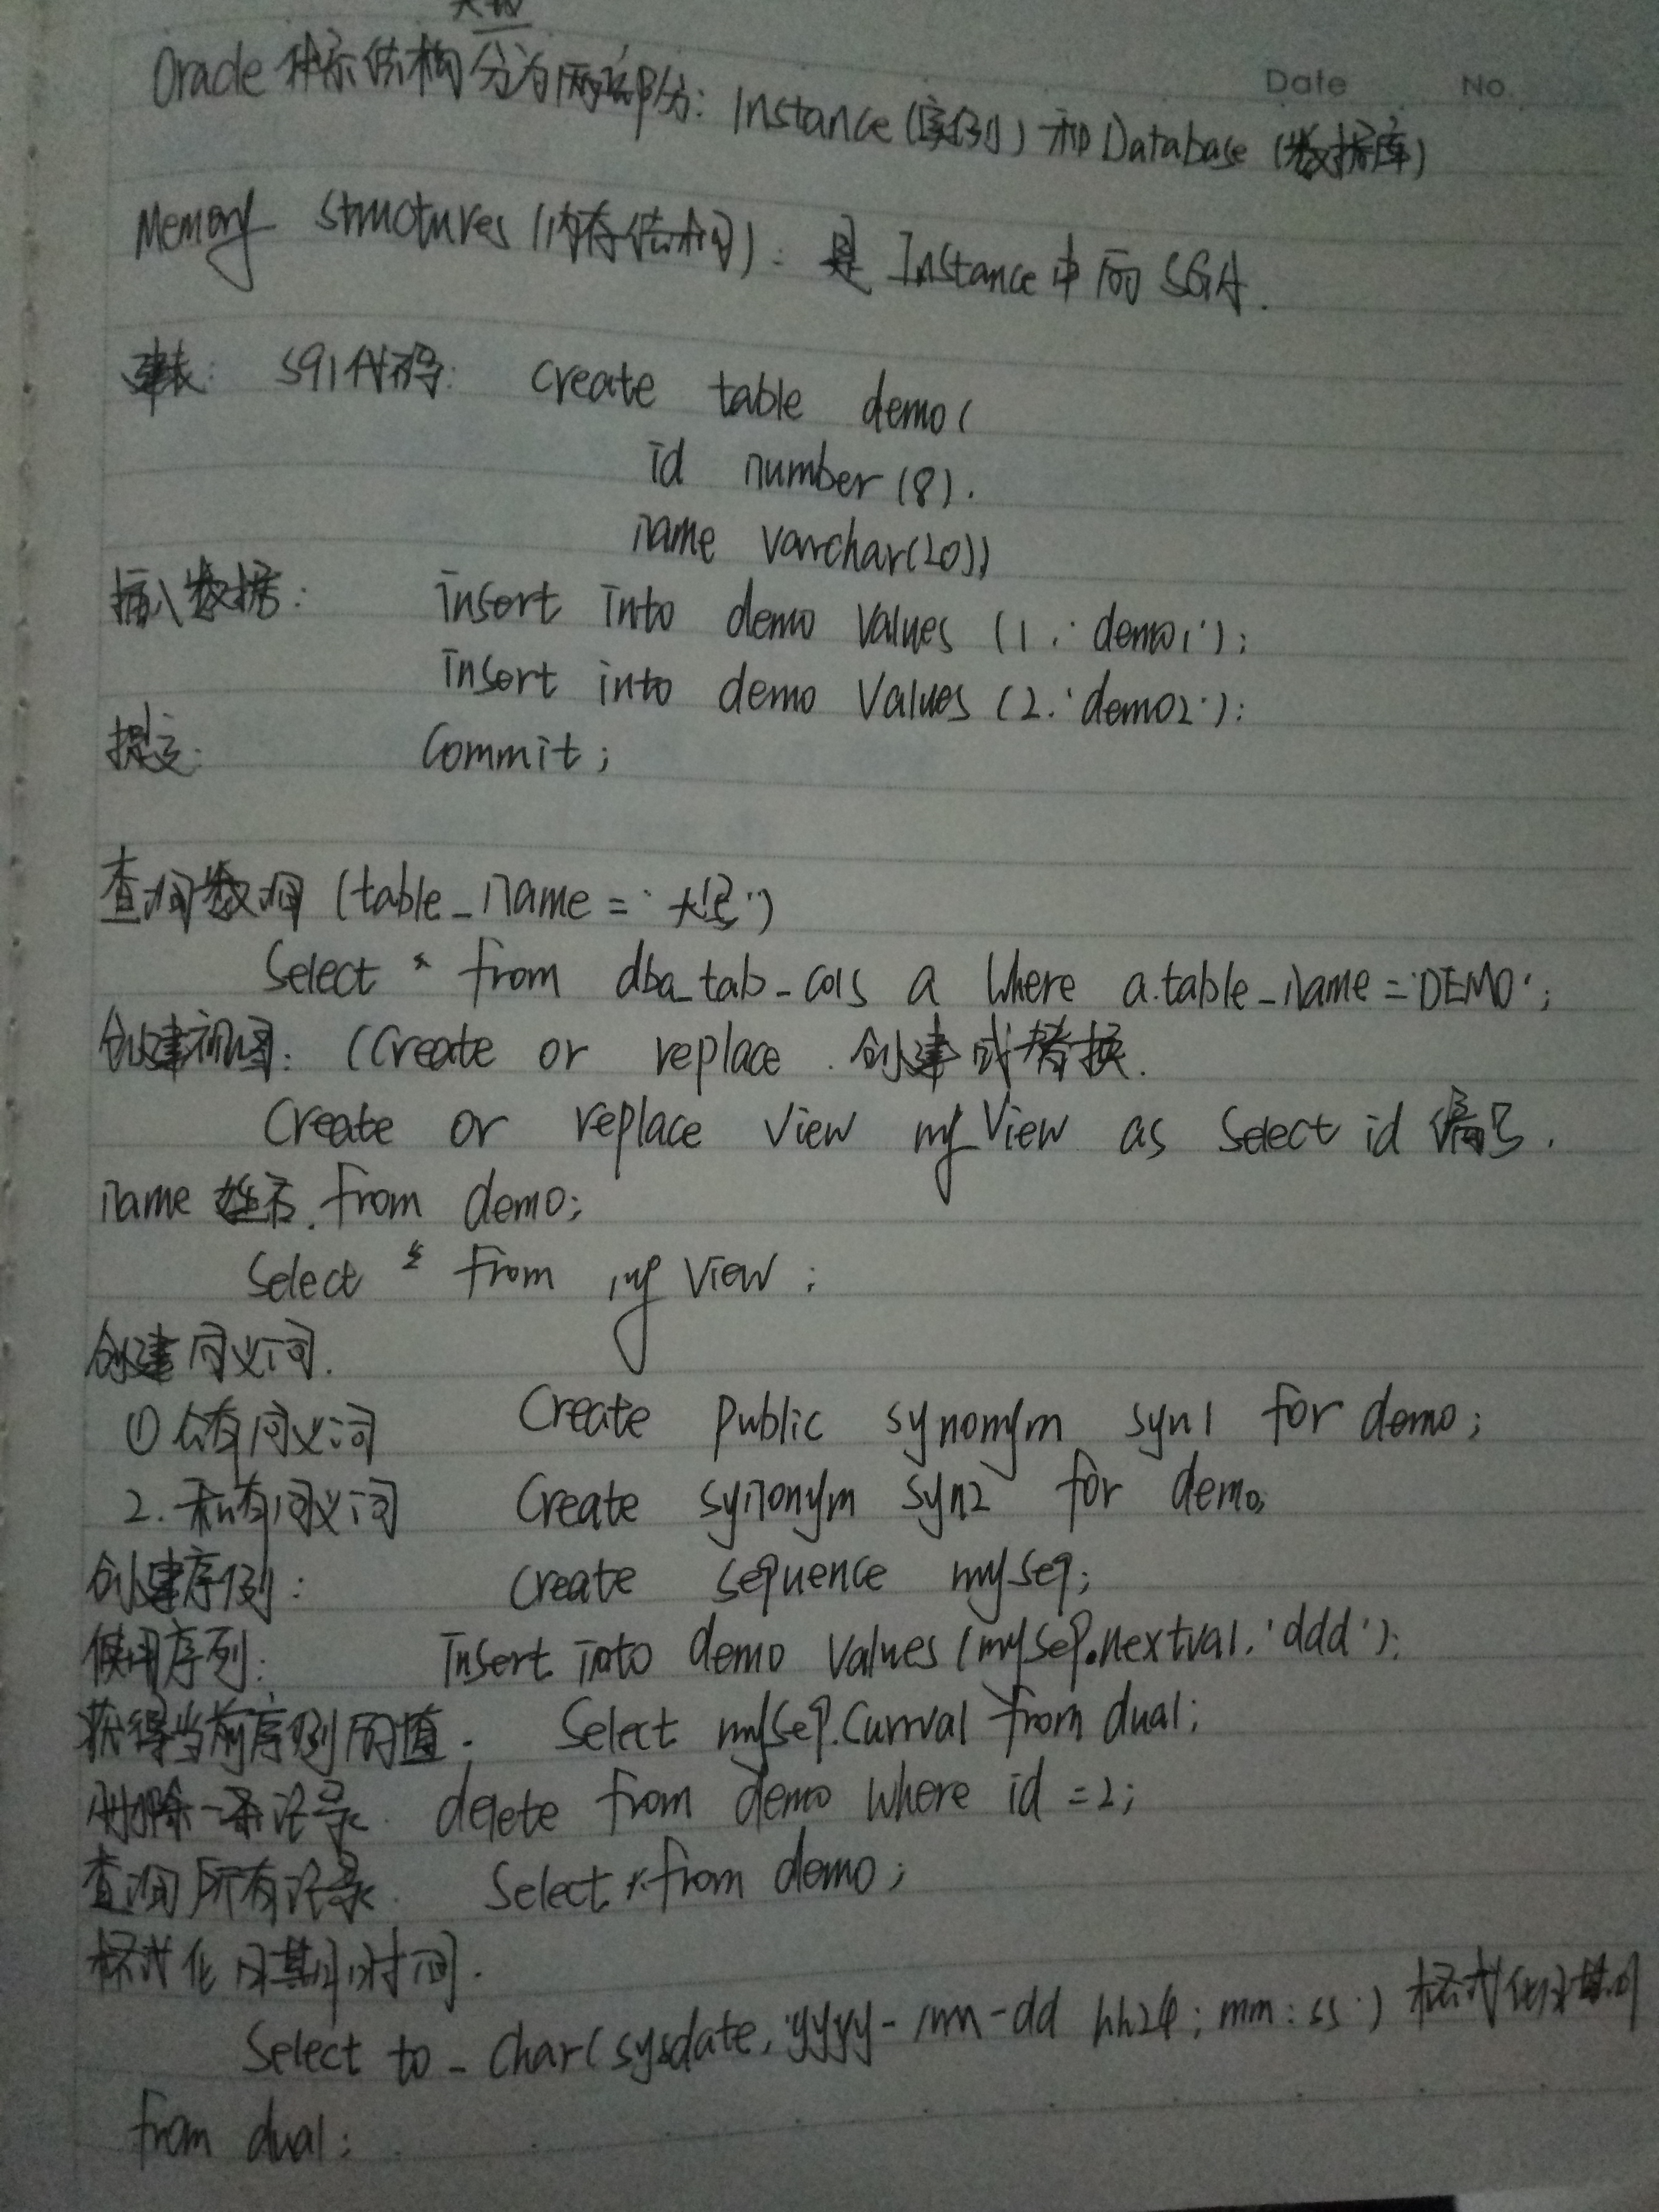 Date No.
Oracle 体系结构分为两部分: Instance (实例) 和 Database (数据库)
Memory structures (内存结构): 是 Instance 中的 SGA.
建表: sql代码: Create table demo(
id number (8).
name varchar(20))
插入数据: insert into demo values (1.'demo1');
insert into demo values (2.'demo2');
提交: Commit;
查询数词 (table_name = '大写')
Select * from dba_tab_cols a where a.table_name='DEMO';
创建视图: (Create or replace. 创建或替换.
Create or replace view my_view as select id 编号.
name 姓名. from demo;
Select * from my view;
创建同义词.
① 公有同义词 Create public synomym syn1 for demo;
2. 私有同义词 Create synonym syn2 for demo;
创建序列: Create sequence myseq;
使用序列: Insert into demo values (myseq.nextval.'ddd');
获得当前序列的值: Select myseq.Currval from dual;
删除一条记录. delete from demo where id =2;
查询所有记录. Select * from demo;
格式化日期时间.
Select to_char(sysdate,'yyyy-mm-dd hh24:mm:ss') 格式化日期时
from dual;